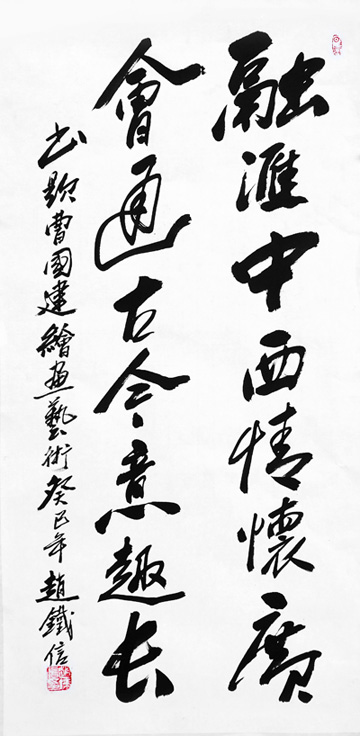 融滙中西情懷廣
會通古今意趣长
书题曹國建繪画藝術癸巳年趙鐵信